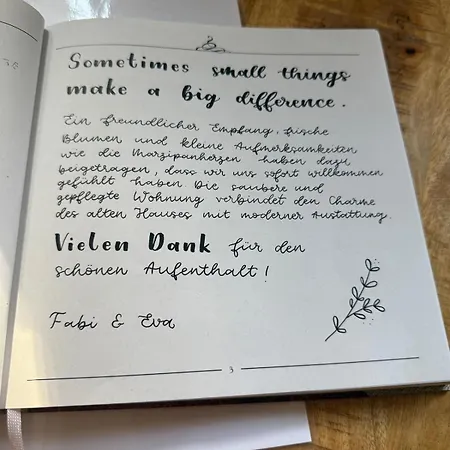 Sometimes small things
make a big difference.
Ein freundlicher Empfang, frische
Blumen und kleine Aufmerksamkeiten
wie die Marzipanherzen haben dazu
beigetragen, dass wir uns sofort willkommen
gefühlt haben. Die saubere und
gepflegte Wohnung verbindet den Charme
des alten Hauses mit moderner Austattung.
Vielen Dank für den
schönen Aufenthalt!
Fabi & Eva
3